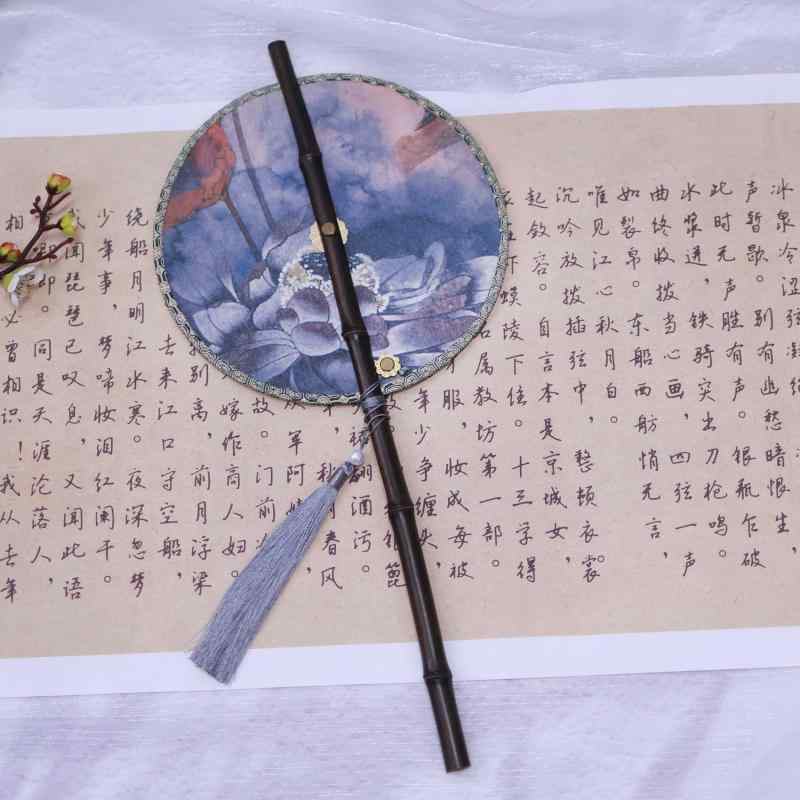 冰泉冷涩弦凝绝
声暂歇。别有幽愁暗恨生，
此时无声胜有声。银瓶乍破
水浆迸，铁骑突出刀枪鸣。
曲终收拨当心画，四弦一声
如裂帛。东船西舫悄无言，
唯见江心秋月白。
沉吟放拨插弦中，整顿衣裳
起敛容。自言本是京城女，
蟆陵下住。十三学得
名属教坊第一部。
服，妆成每被
年少争缠头，
银篦
翻酒污。
秋月春风
从军阿姨
故。门前冷
嫁作商人妇。
别离，前月浮梁
去来江口守空船，
绕船月明江水寒。夜深忽梦
少年事，梦啼妆泪红阑干。
我闻琵琶已叹息，又闻此语
唧唧。同是天涯沦落人，
相必曾相识！我从去年